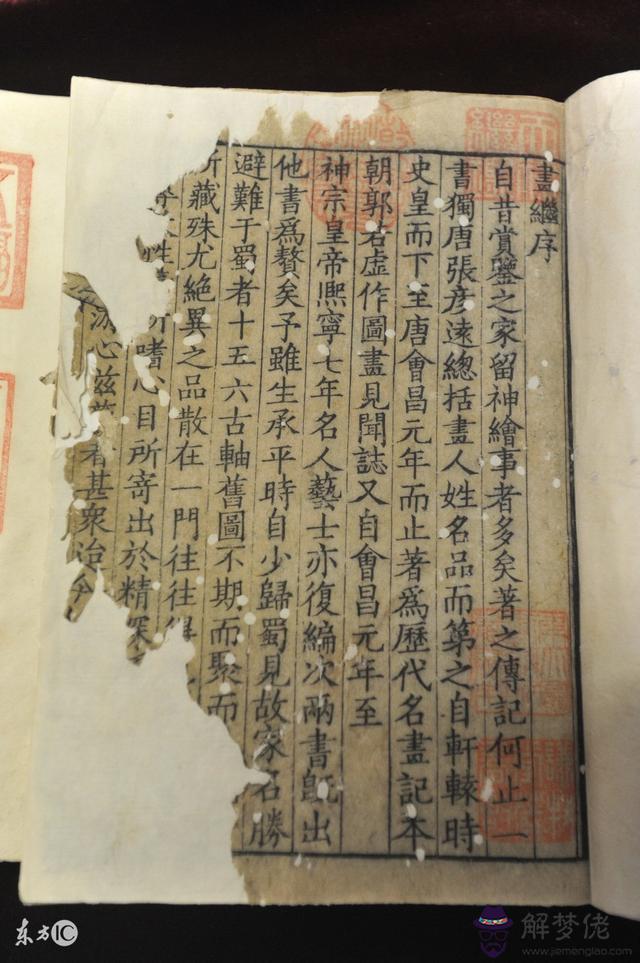 畫繼序
自昔賞鑒之家留神繪事者多矣著之傳記何止一
書獨唐張彥遠總括畫人姓名品而第之自軒轅時
史皇而下至唐會昌元年而止著爲歷代名畫記本
朝郭若虛作圖畫見聞誌又自會昌元年至
神宗皇帝熙寧七年名人藝士亦復編次兩書旣出
他書爲贅矣予雖生承平時自少歸蜀見故家名勝
避難于蜀者十五六古軸舊圖不期而聚而
所藏殊尤絶異之品散在一門往往得
性所嗜心目所寄出於精深
心兹者甚衆迨今
东方IC
解梦佬
www.jiemenglao.com